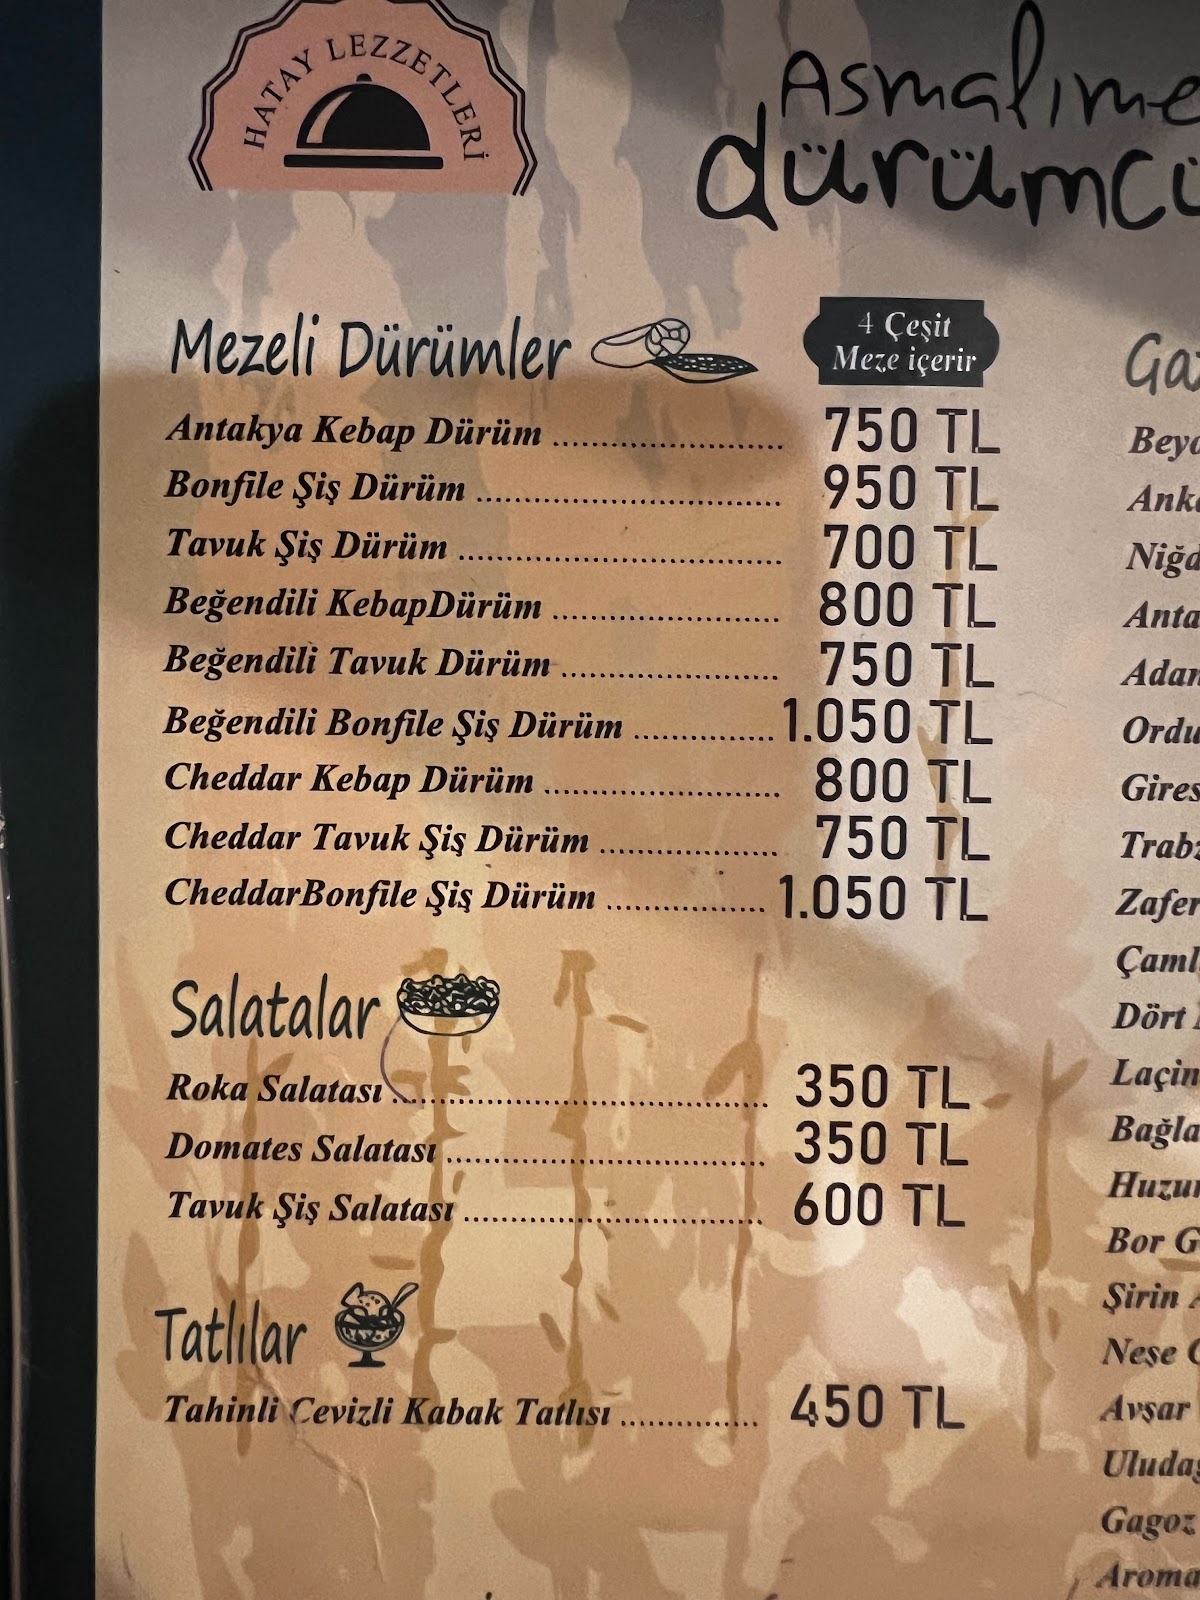 HATAY LEZZETLERİ
Asmalıme
dürümcü
Mezeli Dürümler
4 Çeşit
Meze içerir
Antakya Kebap Dürüm ........................ 750 TL
Bonfile Şiş Dürüm ................................ 950 TL
Tavuk Şiş Dürüm .................................. 700 TL
Beğendili KebapDürüm ........................ 800 TL
Beğendili Tavuk Dürüm ....................... 750 TL
Beğendili Bonfile Şiş Dürüm ............... 1.050 TL
Cheddar Kebap Dürüm ......................... 800 TL
Cheddar Tavuk Şiş Dürüm ................... 750 TL
CheddarBonfile Şiş Dürüm ................. 1.050 TL
Salatalar
Roka Salatası ........................................ 350 TL
Domates Salatası .................................. 350 TL
Tavuk Şiş Salatası ................................ 600 TL
Tatlılar
Tahinli Cevizli Kabak Tatlısı ............... 450 TL
Gaz
Beyo
Anka
Niğd
Anta
Adan
Ordu
Gires
Trabz
Zafer
Çaml
Dört
Laçin
Bağla
Huzur
Bor G
Şirin A
Neşe G
Avşar
Uludağ
Gagoz
Aroma